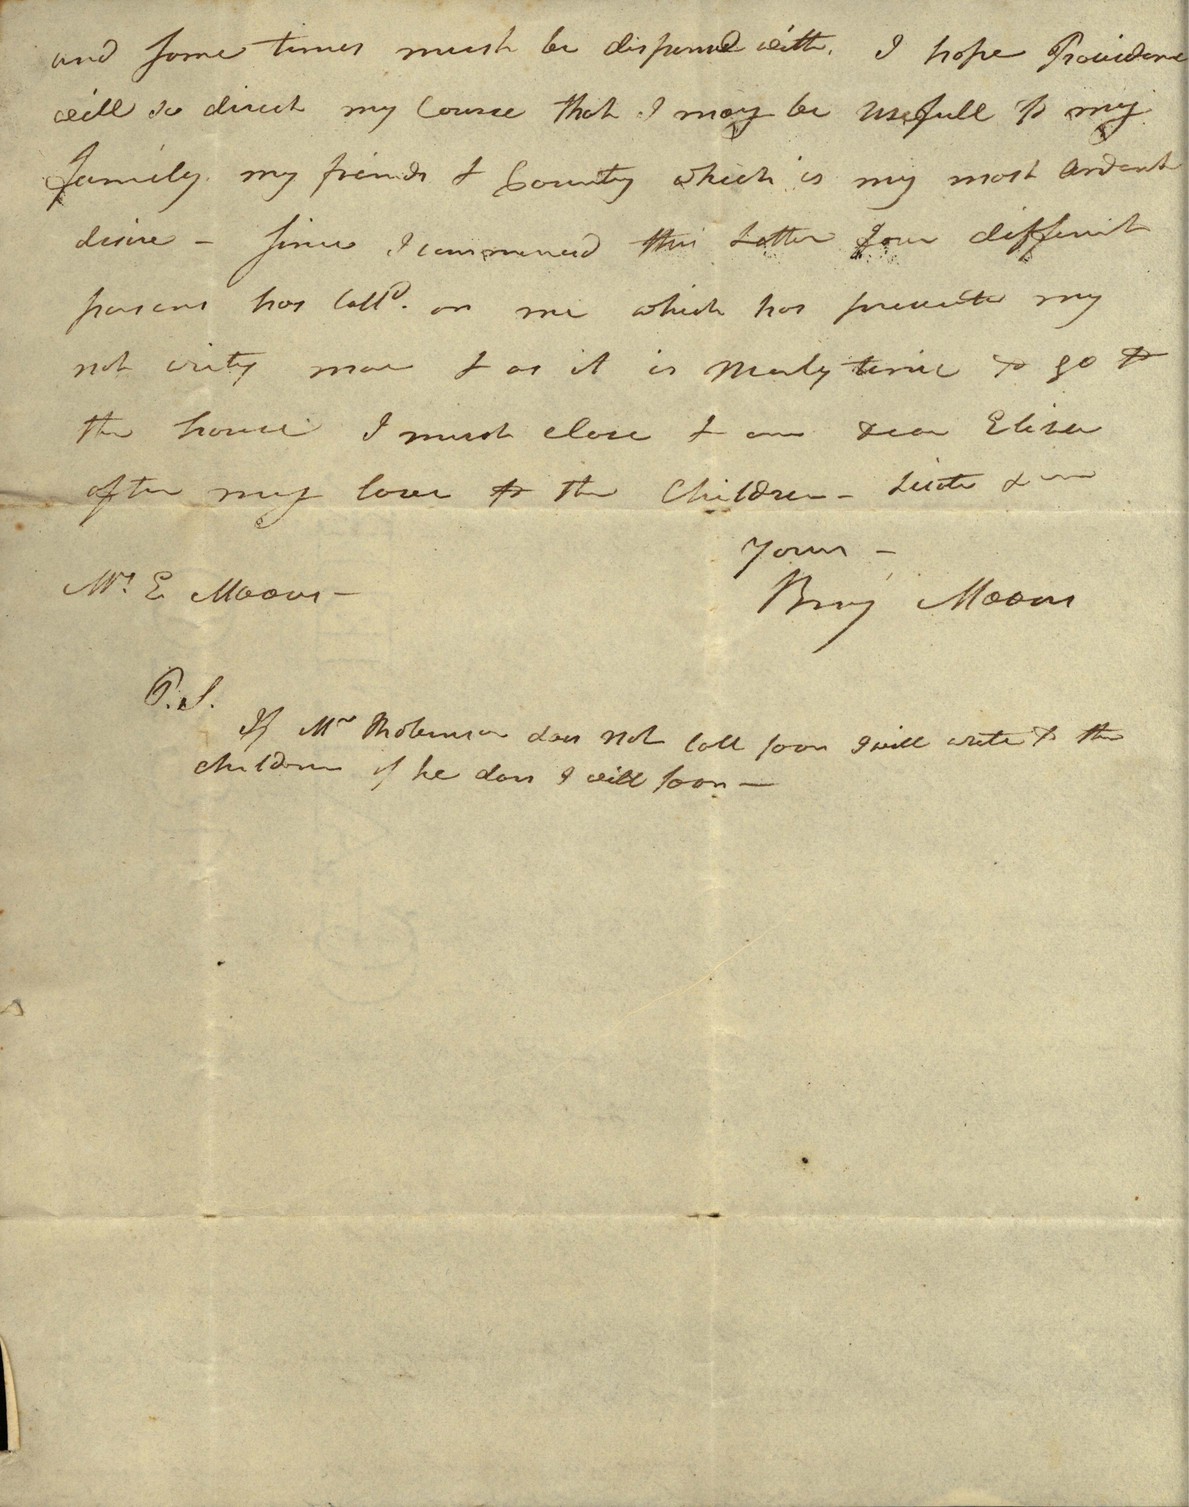 and some times must be dispensed with. I hope Providence
will so direct my Course that I may be usefull to my
family my friends & Country which is my most ardent
desire – since I commenced this Letter four different
persons has call<sup>d</sup>. on me which has prevented my
not writg more & as it is Nearly time to go to
the house I must close & am Dear Eliza
after my love to the Children –
Yours –
Benj Mooers
Mrs E Mooers –
P.S.
If Mr Robinson does not call soon I will write to the
children if he does I will soon —